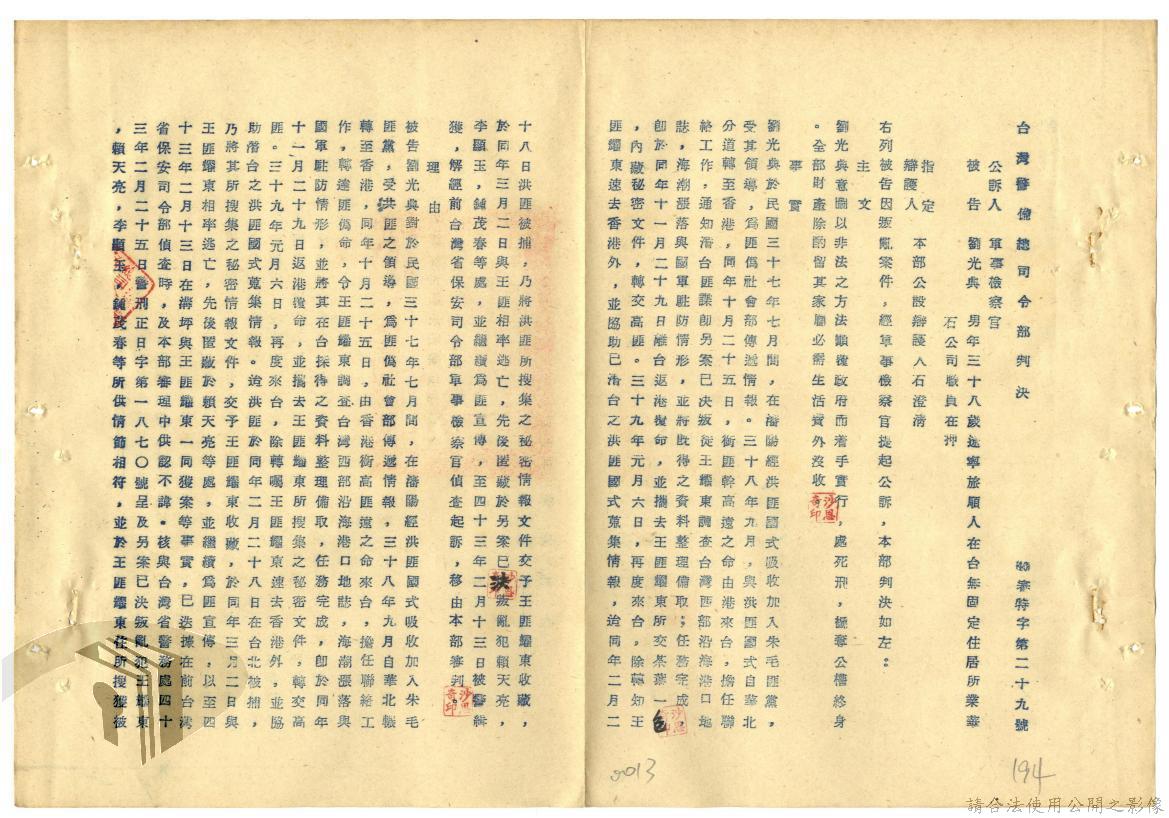 台灣警備總司令部判決
審特字第二十九號
公訴人 軍事檢察官
被告 劉光典 男年三十八歲遼寧旅順人在台無固定住居所業華
石公司職員在押
指定
辯護人 本部公設辯護人石澄清
右列被告因叛亂案件,經軍事檢察官提起公訴,本部判決如左:
主文
劉光典意圖以非法之方法顛覆政府而着手實行,處死刑,褫奪公權終身
。全部財產除酌留其家屬必需生活費外沒收。
事實
劉光典於民國三十七年七月間,在瀋陽經洪匪國式吸收加入朱毛匪黨,
受其領導,為匪偽社會部傳遞情報。三十八年九月,與洪匪國式自華北
分道轉至香港,同年十月二十五日,銜匪幹高遠之命由港來台,擔任聯
絡工作,通知潛台匪諜即另案已決叛徒王耀東調查台灣西部沿海港口地
誌,海潮漲落與國軍駐防情形,並將既得之資料整理備取;任務完成,
卽於同年十一月二十九日離台返港復命,並攜去王匪耀東所交茶葉一包
,內藏秘密文件,轉交高匪。三十九年元月六日,再度來台,除轉知王
匪耀東速去香港外,並協助已潛台之洪匪國式蒐集情報,迨同年二月二
十八日洪匪被捕,乃將洪匪所搜集之秘密情報文件交予王匪耀東收藏,
於同年三月二日與王匪相率逃亡,先後匿藏於另案已決叛亂犯賴天亮,
李顯玉,鍾茂春等處,並繼續為匪宣傳,至四十三年二月十三日被警緝
獲,解經前台灣省保安司令部軍事檢察官偵查起訴,移由本部審判。
理由
被告劉光典對於民國三十七年七月間,在瀋陽經洪匪國式吸收加入朱毛
匪黨,受洪匪之領導,為匪偽社會部傳遞情報,三十八年九月自華北輾
轉至香港,同年十月二十五日,由香港銜高匪遠之命來台,擔任聯絡工
作,轉達匪偽命,令王匪耀東調查台灣西部沿海港口地誌,海潮漲落與
國軍駐防情形,並將其在台採得之資料整理備取,任務完成,卽於同年
十一月二十九日返港復命,並攜去王匪耀東所搜集之秘密文件,轉交高
匪。三十九年元月六日,再度來台,除轉囑王匪耀東速去香港外,並協
助潛台之洪匪國式蒐集情報。迨洪匪於同年二月二十八日在台北被捕,
乃將其所搜集之秘密情報文件,交予王匪耀東收藏,於同年三月二日與
王匪耀東相率逃亡,先後匿藏於賴天亮等處,並繼續為匪宣傳,以至四
十三年二月十三日在濟坪與王匪耀東一同獲案等事實,已迭據在前台灣
省保安司令部偵查時,及本部審理中供認不諱。核與台灣省警務處四十
三年二月二十五日警刑正日字第一八七〇號呈及另案已決叛亂犯王耀東
,賴天亮,李顯玉,鍾茂春等所供情節相符,並於王匪耀東住所搜獲被
194
0013
請合法使用公開之影像